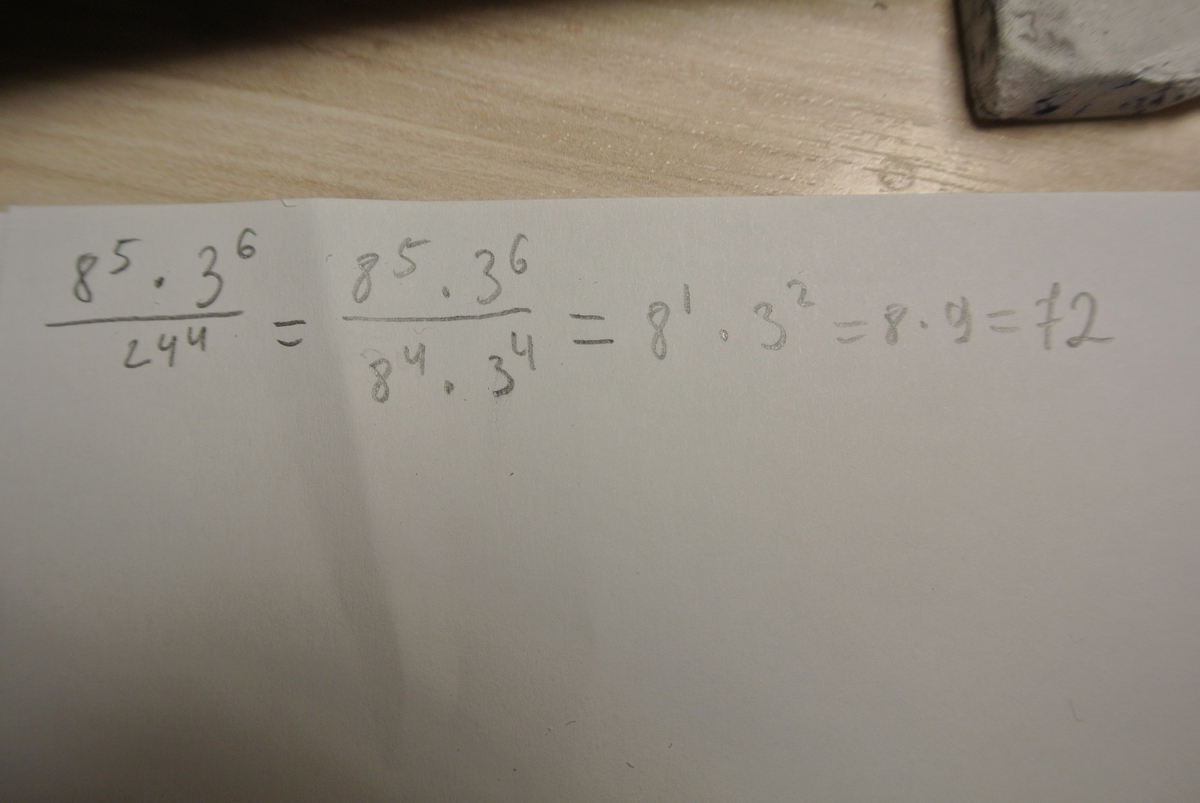 8⁵ · 3⁶ / 24⁴ = 8⁵ · 3⁶ / 8⁴ · 3⁴ = 8¹ · 3² = 8 · 9 = 72